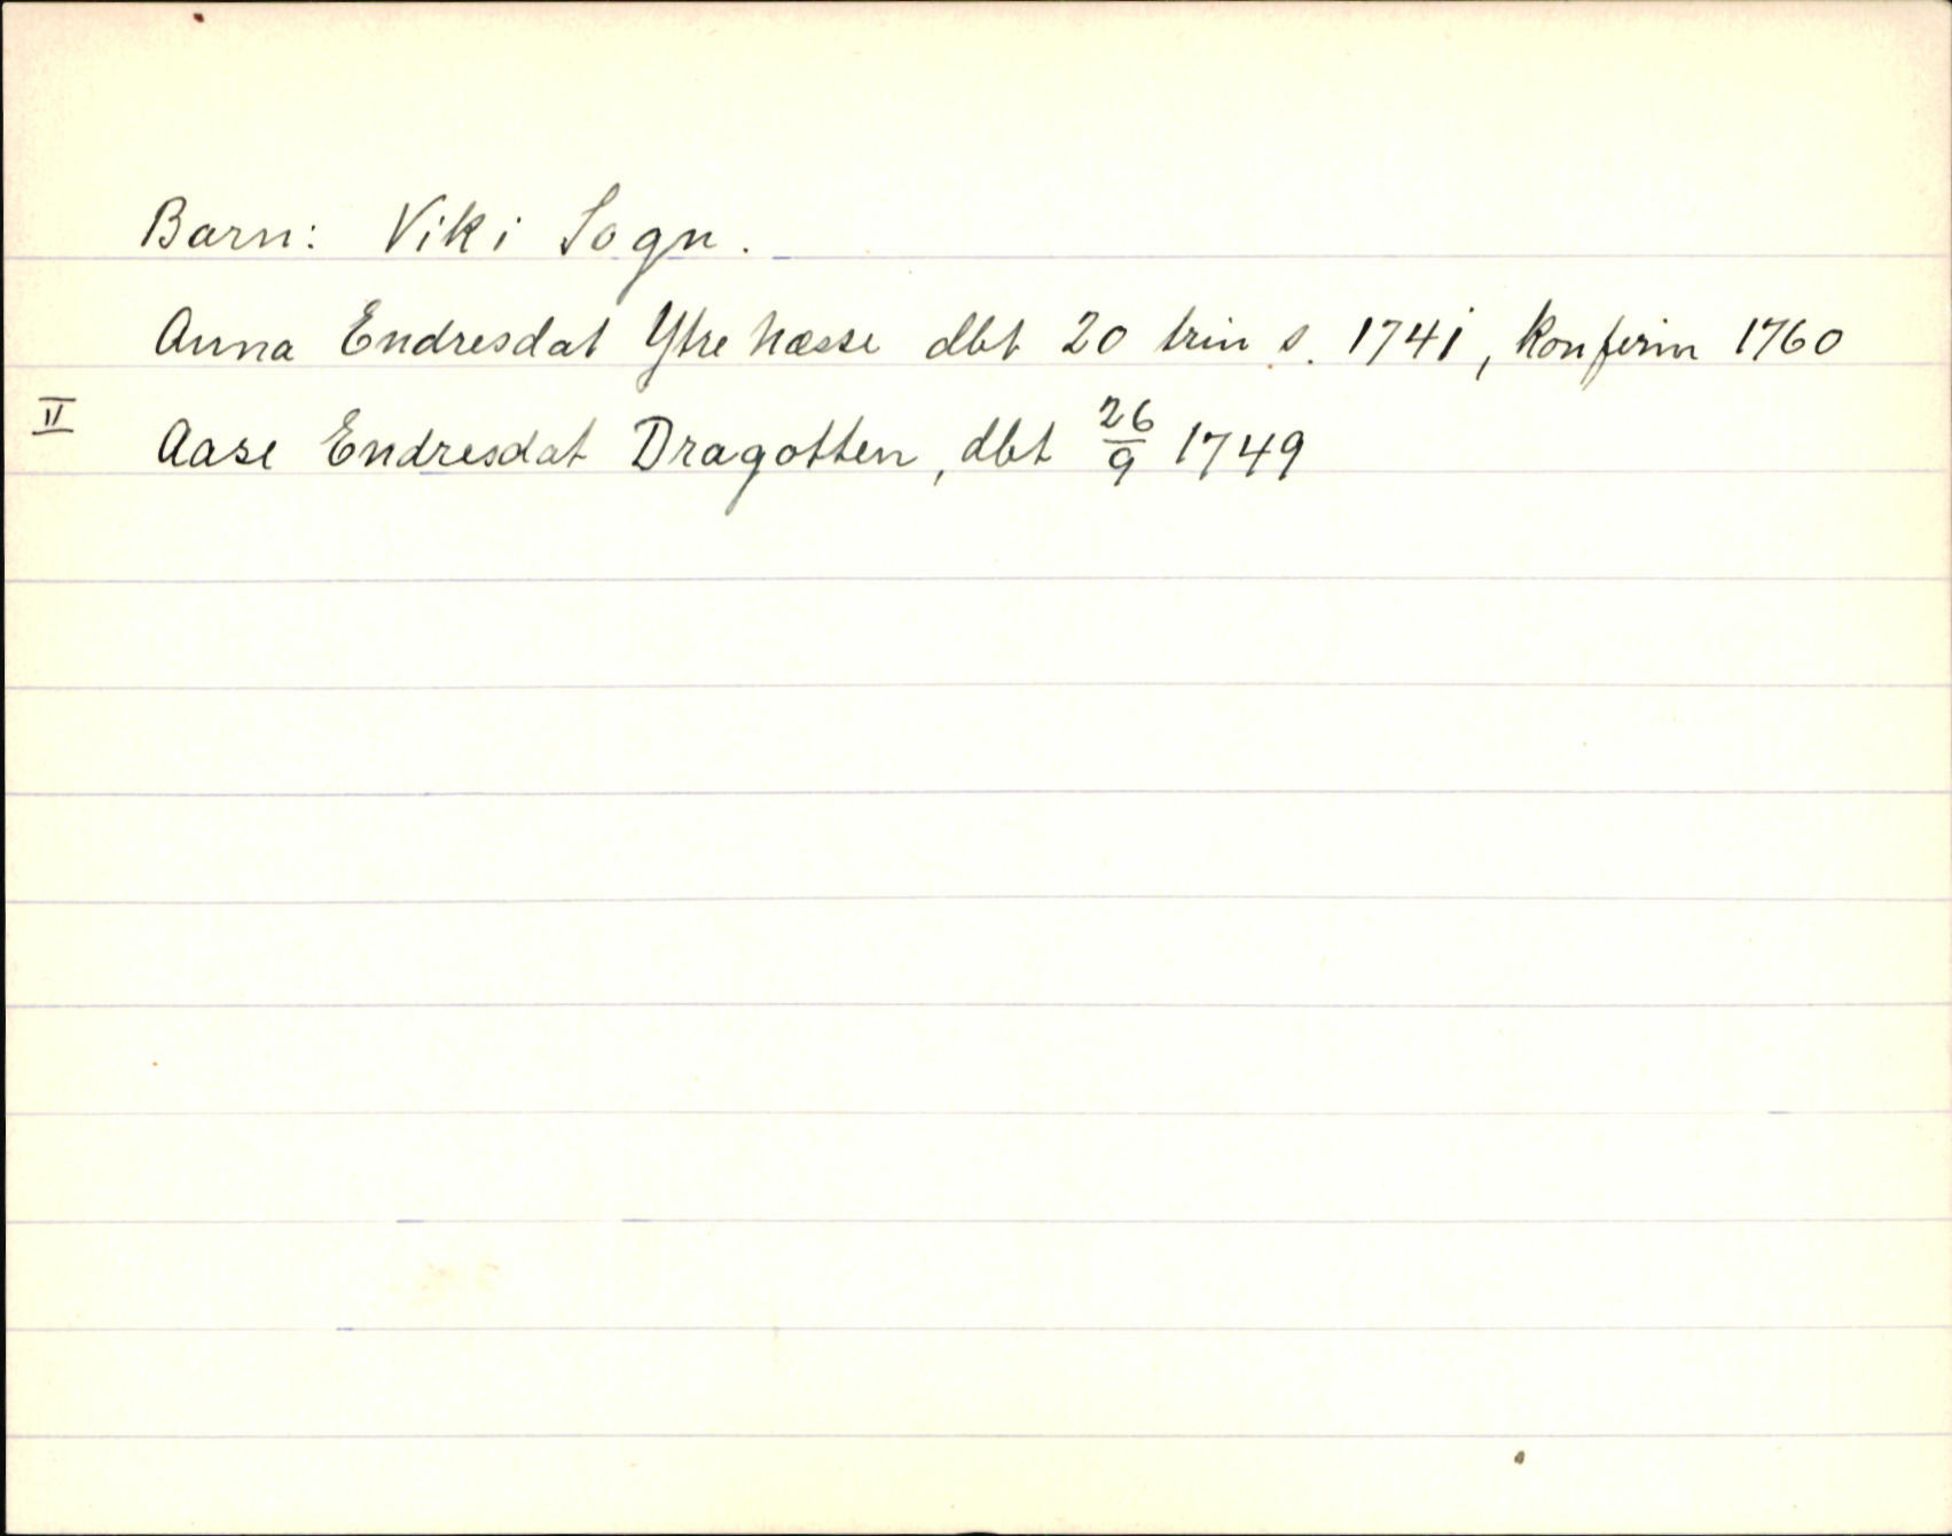 Barn: Vik i Sogn.
Anna Endresdat Ytre hæsse dbt 20 trin s. 1741, konfirm 1760
II Aase Endresdat Dragotten, dbt 26/9 1749